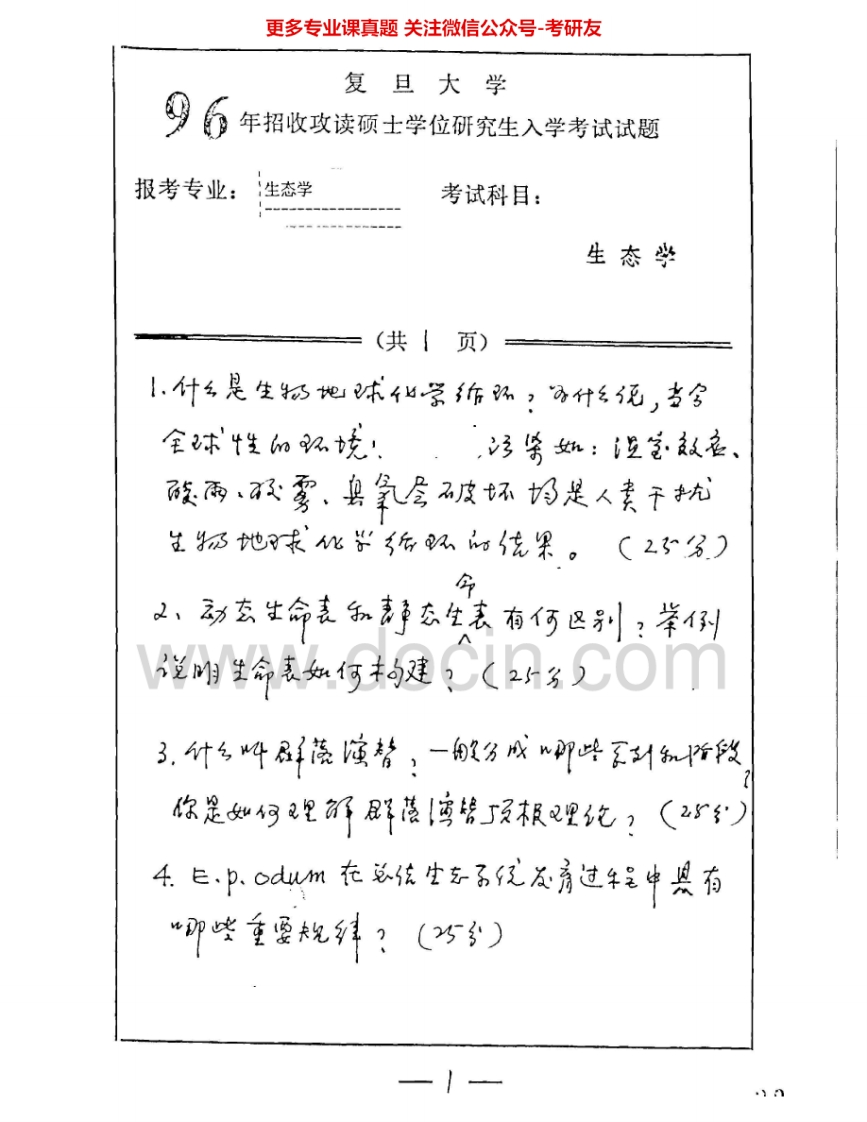 更多专业课真题 关注微信公众号-考研友
复旦大学
96年招收攻读硕士学位研究生入学考试试题
报考专业：生态学 考试科目：
生态学
（共 1 页）
1. 什么是生物地球化学循环？为什么说，当今
全球性的环境 污染如：温室效应、
酸雨、酸雾、臭氧层破坏均是人类干扰
生物地球化学循环的结果。（25分）
2、动态生命表和静态生命表有何区别？举例
说明生命表如何构建？（25分）
www.docin.com
3. 什么叫群落演替，一般分成哪些系列和阶段？
你是如何理解群落演替顶极理论？（25分）
4. E.p.odum 在总结生态系统发育过程中具有
哪些重要规律？（25分）
— 1 —